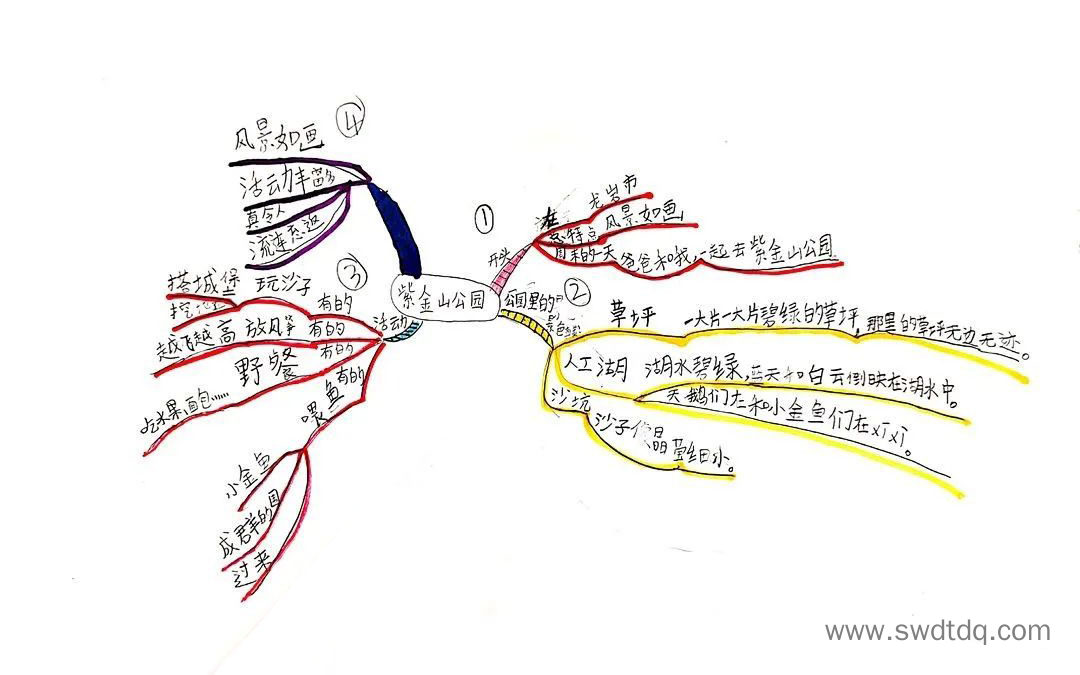 紫金山公园
①
开头
在
龙岩市
特点
风景如画
周末的一天
爸爸和我,一起去紫金山公园
②
公园里的
景色
草坪
一大片一大片碧绿的草坪,那里的草坪无边无迹。
人工湖
湖水碧绿,蓝天和白云倒映在湖水中。
天鹅们在和小金鱼们在xīxī。
沙坑
沙子
晶莹细小。
③
活动
有的
玩沙子
搭城堡
有的
放风筝
越飞越高
有的
野餐
吃水果、面包……
有的
喂鱼
小金鱼
成群的
过来
④
风景如画
活动丰富多
真令人
流连忘返
www.swdtdq.com